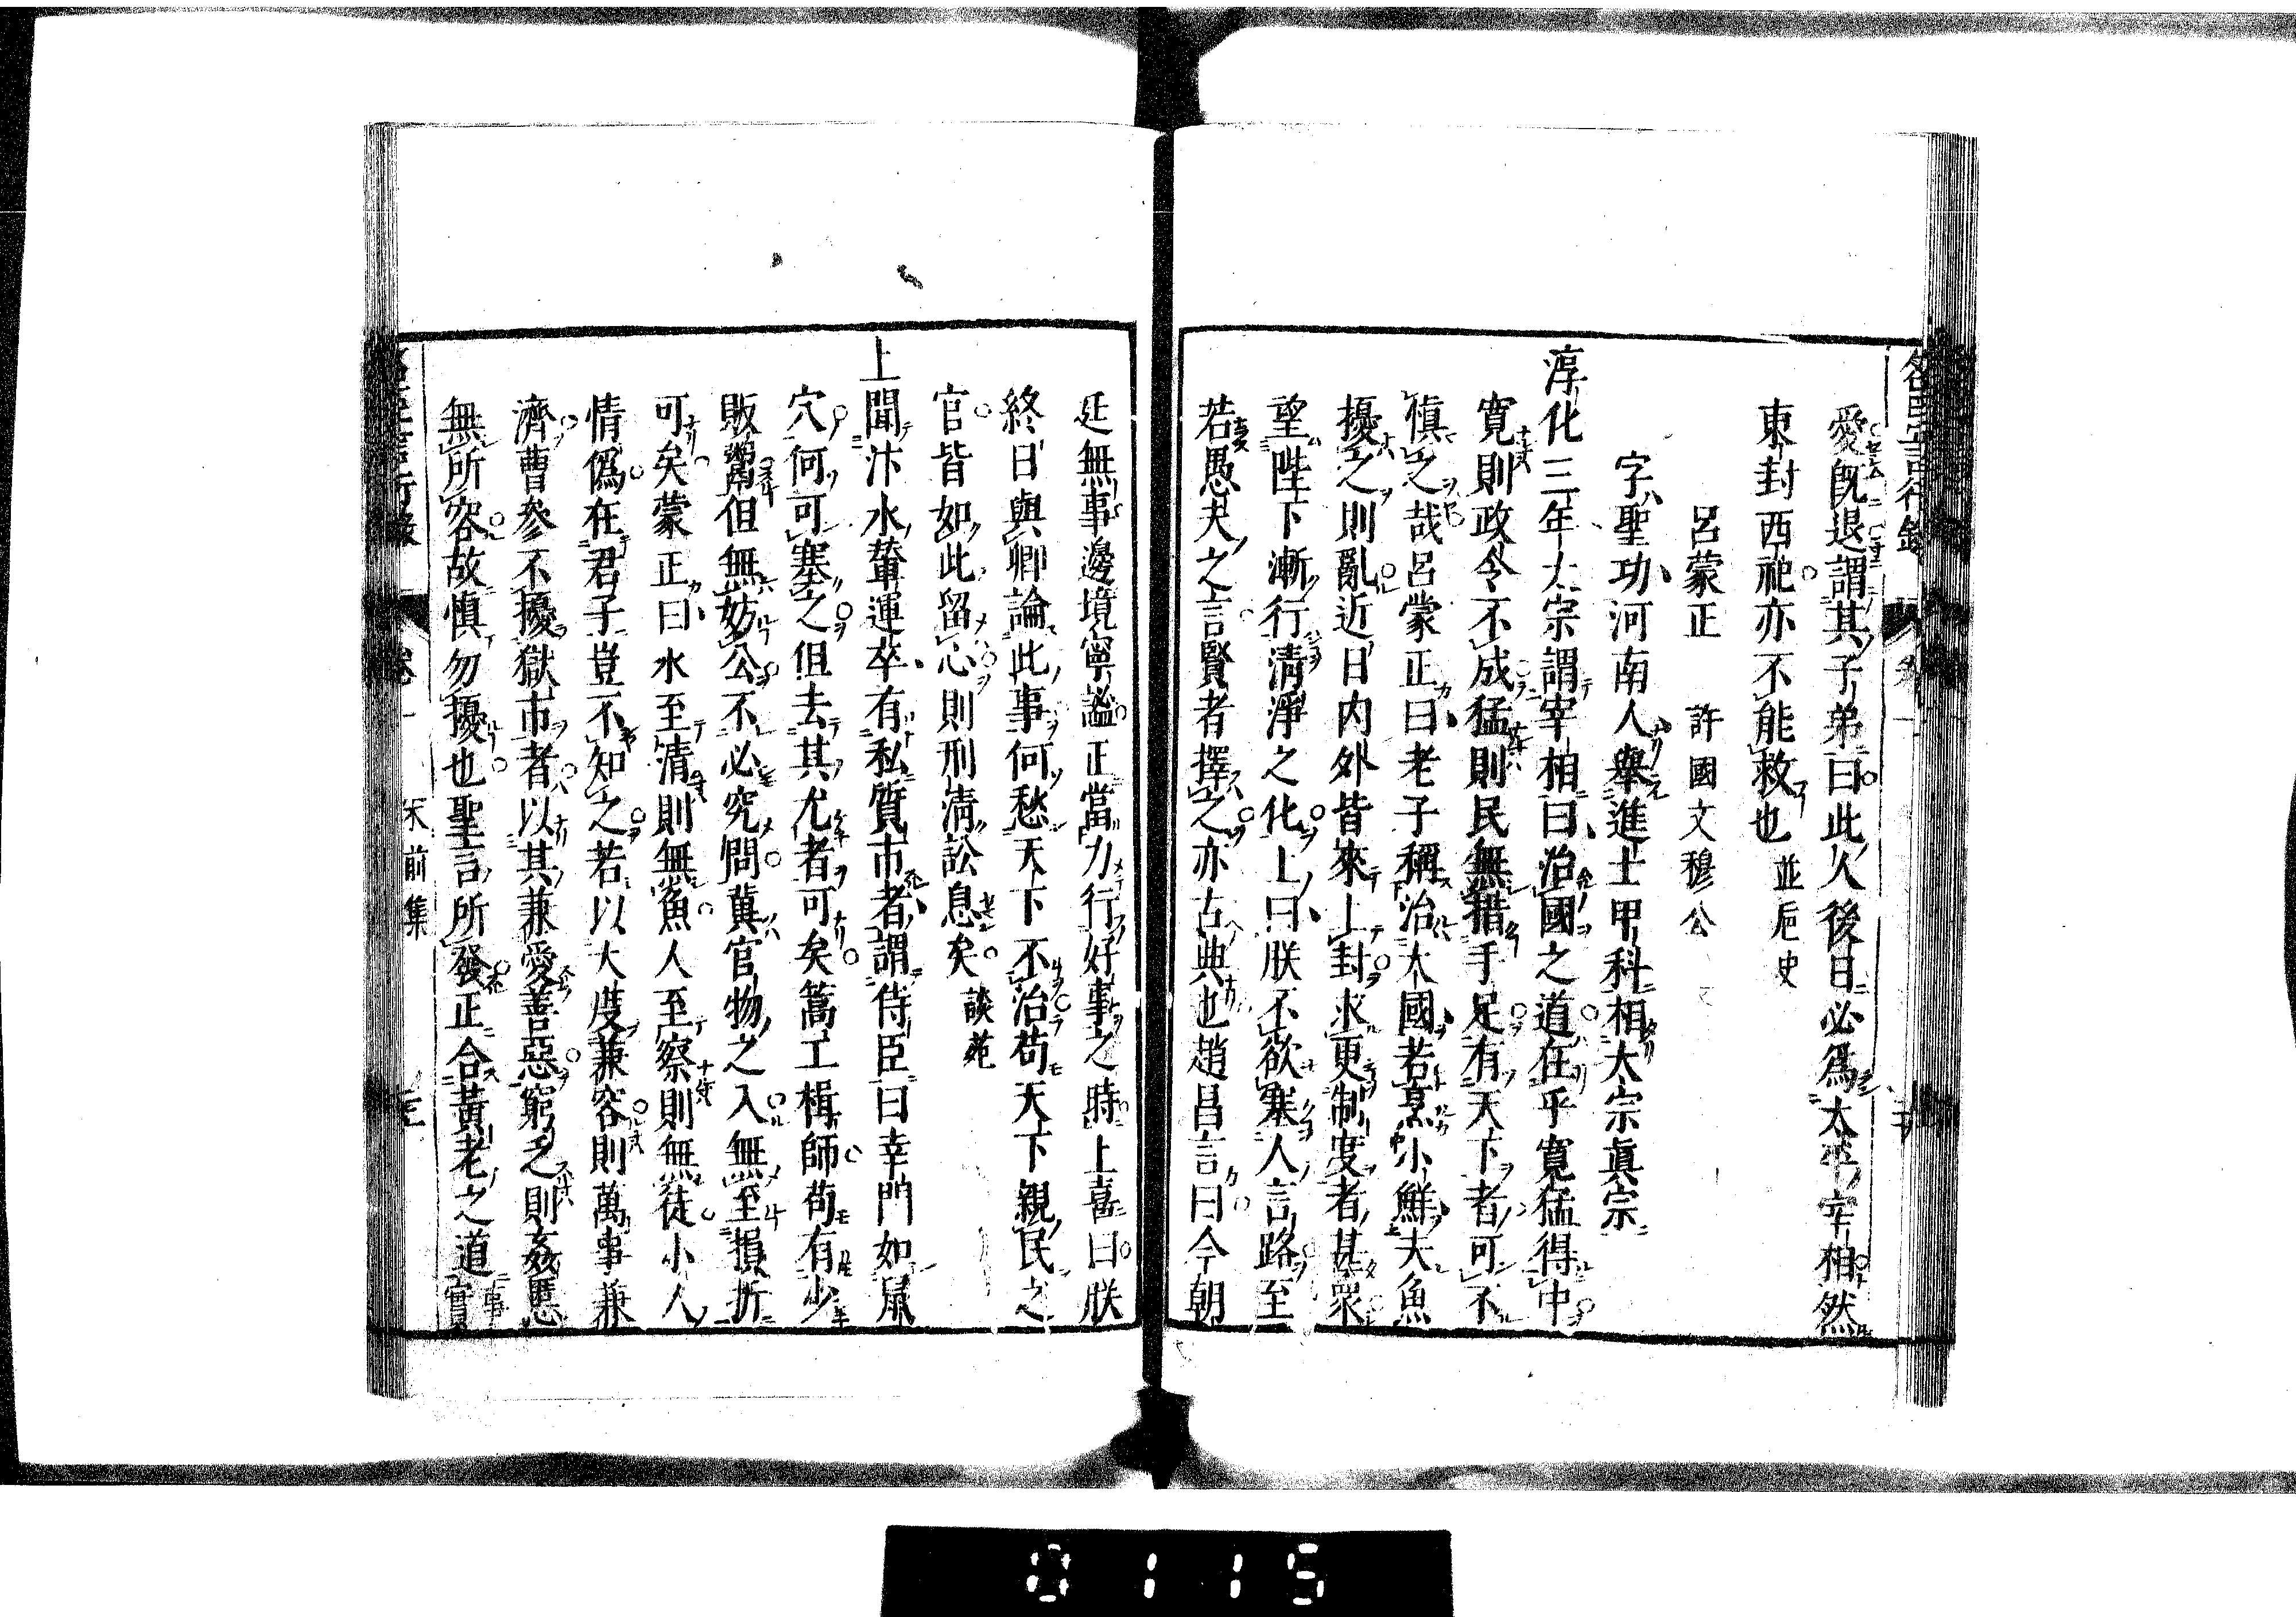 愛既退謂其子弟曰此人後日必爲太平宰相然
東封西祀亦不能救也 並巵史
呂蒙正 許國文穆公
字聖功河南人舉進士甲科相太宗眞宗
淳化三年太宗謂宰相曰治國之道在乎寛猛得中
寛則政令不成猛則民無措手足有天下者可不
愼之哉呂蒙正曰老子稱治大國若烹小鮮夫魚
擾之則亂近日内外皆來上封求更制度者甚衆
望陛下漸行淸淨之化上曰朕不欲塞人言路至
若愚夫之言賢者擇之亦古典也趙昌言曰今朝
廷無事邊境寧謐正當力行好事之時上喜曰朕
終日與卿論此事何愁天下不治苟天下親民之
官皆如此留心則刑淸訟息矣 談苑
上聞汴水輦運卒有私質市者謂侍臣曰幸門如鼠
穴何可塞之但去其尤者可矣篙工楫師苟有少
販鬻但無妨公不必究問冀官物之入無至損折
可矣蒙正曰水至淸則無魚人至察則無徒小人
情僞在君子豈不知之若以大度兼容則萬事兼
濟曹參不擾獄市者以其兼愛善惡窮之則姦慝
無所容故愼勿擾也聖言所發正合黃老之道 事實
宋前集